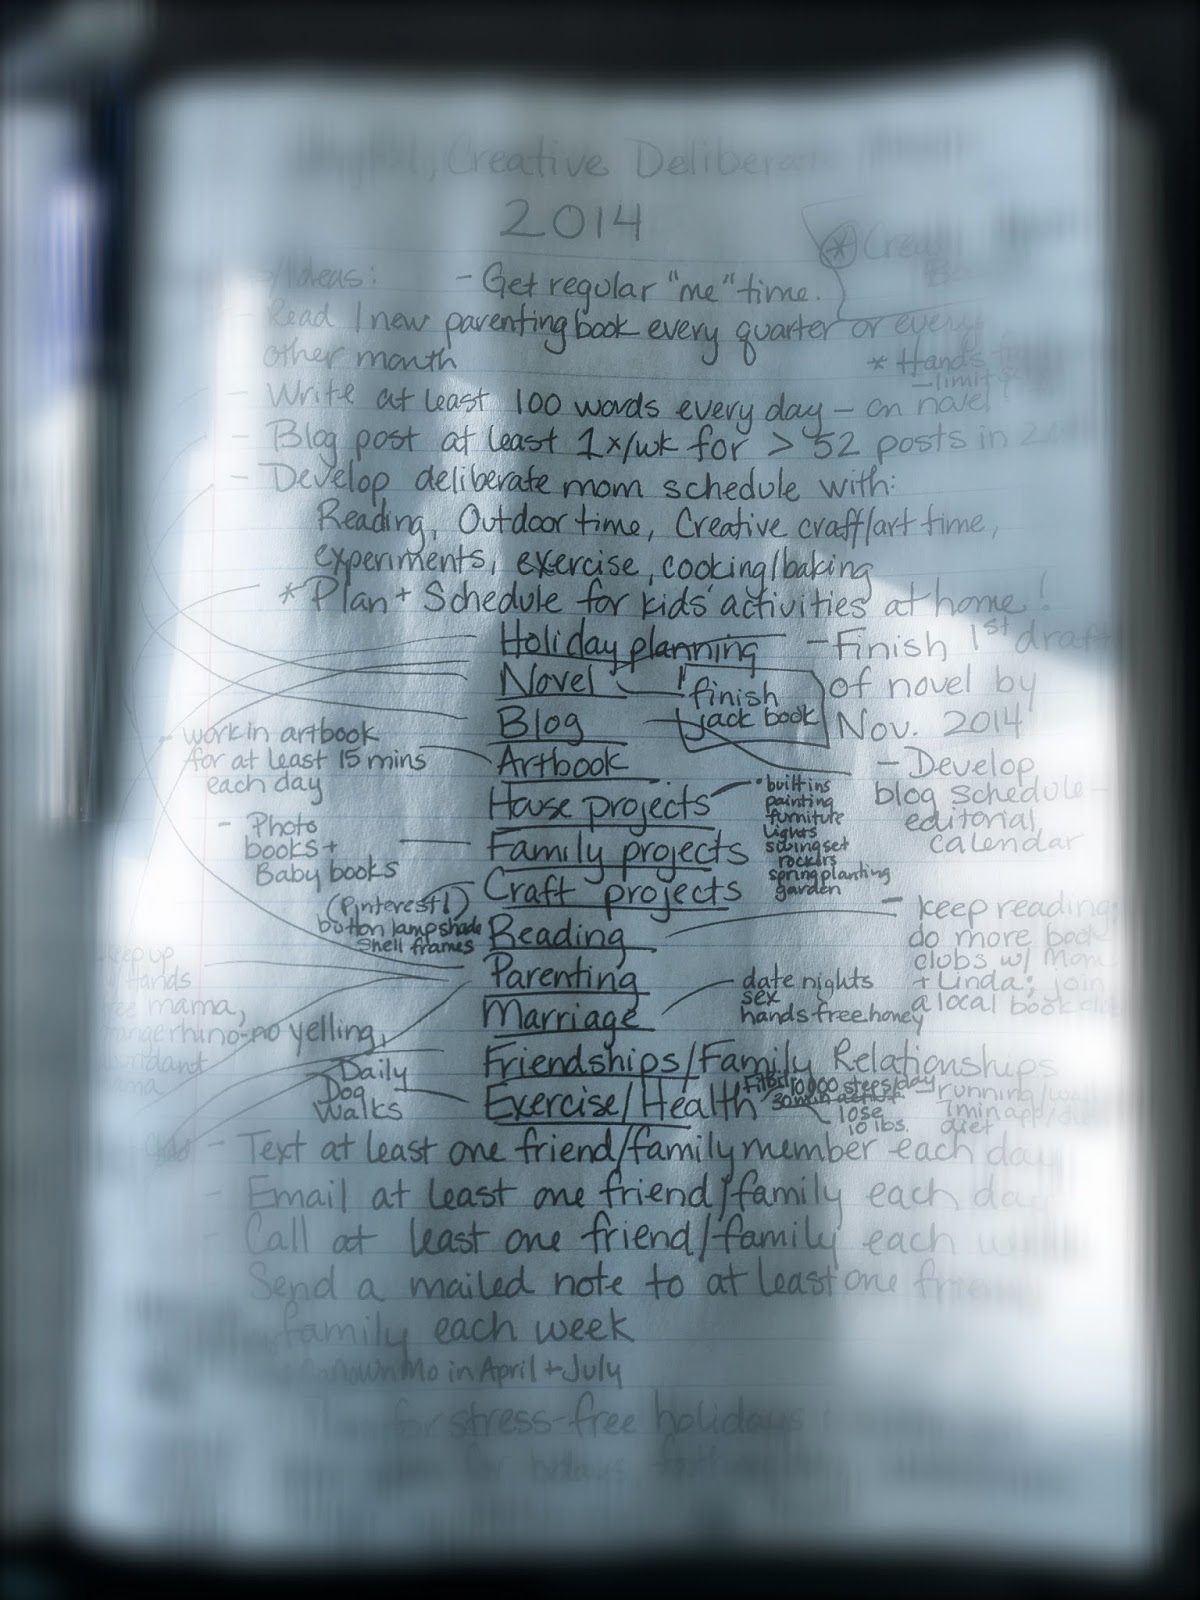 Creative Deliberate
2014
/Ideas: - Get regular "me" time.
Read 1 new parenting book every quarter or every
other month
* Hands
- limit
- Write at least 100 words every day - on novel
- Blog post at least 1x/wk for > 52 posts in
- Develop deliberate mom schedule with:
Reading, Outdoor time, Creative craft/art time,
experiments, exercise, cooking/baking
* Plan + Schedule for kids' activities at home!
Holiday planning
- Finish 1st draft
of novel by
Nov. 2014
Novel
finish
Jack book
Blog
- Develop
blog schedule -
editorial
calendar
- work in artbook
for at least 15 mins
each day
Artbook
House projects
• built ins
painting
furniture
lights
swingset
rockers
spring planting
garden
- Photo
books +
Baby books
Family projects
Craft projects
(Pinterest!)
button lampshade
shell frames
Reading
- keep reading;
do more book
clubs w/ Mom
+ Linda; join
a local book club
Parenting
keep up
hands
free mama,
rhino-no yelling,
Marriage
date nights
sex
hands free honey
Friendships/Family Relationships
Daily
Dog
Walks
Exercise/Health
Fitbit 10,000 steps/day
lose
10 lbs.
- running/
7min app/
diet
- Text at least one friend/family member each day
- Email at least one friend/family each day
- Call at least one friend/family each
Send a mailed note to at least one
family each week
in April + July
for stress-free holidays